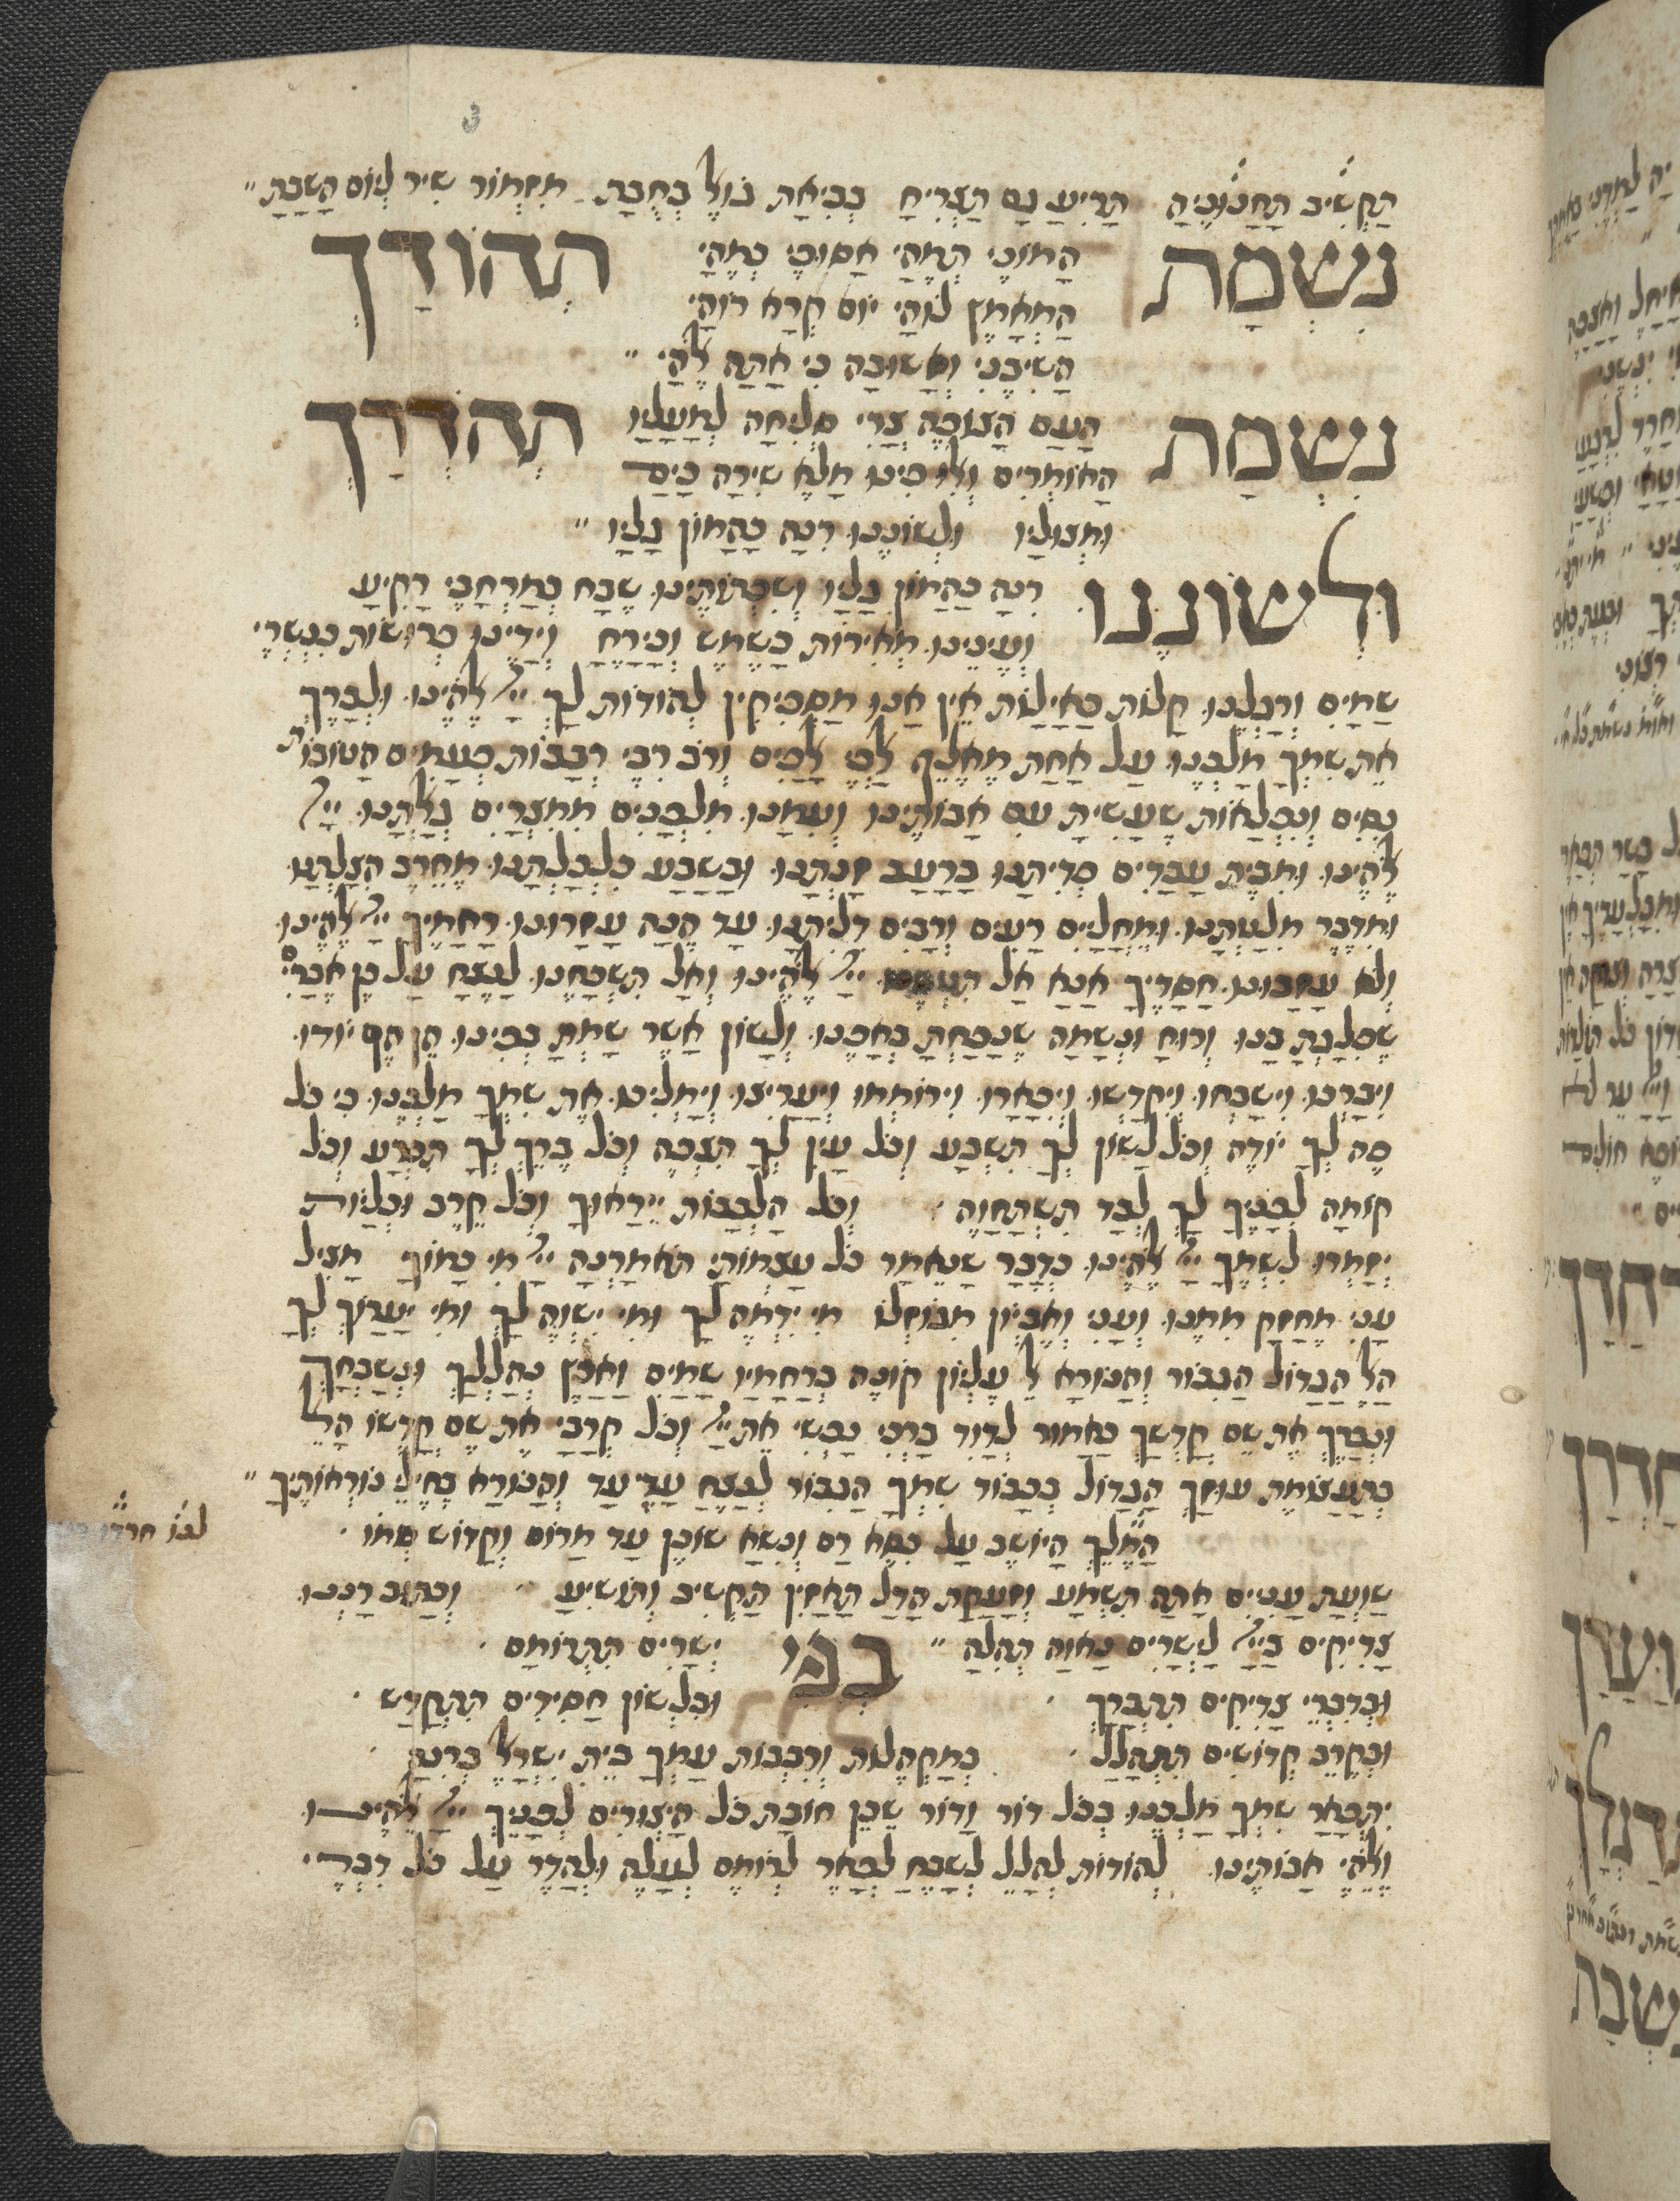 הקשיב התנופיה הריע גם הצריח בביאת גואל בחבת מזמור שיר ליום השבת״
נשמת המוני תמהי חסוכי כמהי תהודך
המאמץ לוהי יום קרא רוהי
השיבני ואשובה כי אתה אלהי״
נשמת העם הצופה צרי סליחה למעליו תהדרך
האומרים ואלו פינו מלא שירה כים
ומצוליו ולשוננו רנה כהמון גליו״
ולשוננו רנה כהמון גליו ושפתותינו שבח כמרחבי רקיע
ועינינו מאירות כשמש וכירח וידינו פרושות כנשרי
שמים ורגלנו קלות כאילות אין אנו מספיקין להודות לך ייי אלהינו ולברך
את שמך מלכנו על אחת מאלף אלפי אלפים ורוב ריבי רבבות פעמים הטובות
נסים ונפלאות שעשית עם אבותינו ועמנו מלפנים ממצרים גאלתנו ייי
אלהינו ומבית עבדים פדיתנו ברעב זנתנו ובשבע כלכלתנו מחרב הצלתנו
ומדבר מלטתנו ומחליים רעים ורבים דליתנו עד הנה עזרונו רחמיך ייי אלהינו
ולא עזבונו חסדיך אנא אל ייי אלהינו ואל תשכחנו לנצח על כן אברים
שפלגת בנו ורוח ונשמה שנפחת באפנו ולשון אשר שמת בפינו הן הם יודו
ויברכו וישבחו ויקדשו ויפארו וירוממו ויעריצו וימליכו את שמך מלכנו כי כל
פה לך יודה וכל לשון לך תשבע וכל עין לך תצפה וכל ברך לך תכרע וכל
קומה לפניך לך לבד תשתחוה וכל הלבבות ייראוך וכל קרב וכליות
יזמרו לשמך ייי אלהינו כדבר שנאמר כל עצמותי תאמרנה ייי מי כמוך מציל
עני מחזק ממנו ועני ואביון מגוזלו מי ידמה לך ומי ישוה לך ומי יערוך לך
האל הגדול הגבור והנורא אל עליון קונה ברחמיו שמים וארץ נהללך ונשבחך
ונברך את שם קדשך כאמור לדוד ברכי נפשי את ייי וכל קרבי את שם קדשו האל
בתעצומת עוזך הגדול בכבוד שמך הגבור לנצח עדי עד והנורא בחילי נוראותיך״
המלך היושב על כסא רם ונשא שוכן עד מרום וקדוש שמו
שועת עניים אתה תשמע וצעקת הדל תאזין תקשיב ותושיע וכתוב רננו
צדיקים בייי לישרים נאוה תהלה״ בפי ישרים תתרומם
ובדברי צדיקים תתברך ובלשון חסידים תתקדש
ובקרב קדושים תתהלל במקהלות ורבבות עמך בית ישראל ברנה
יתפאר שמך מלכנו בכל דור ודור שכן חובת כל היצורים לפניך ייי אלהינו
ואלהי אבותינו להודות להלל לשבח לפאר לרומם לעלה ולהדר על כל דברי